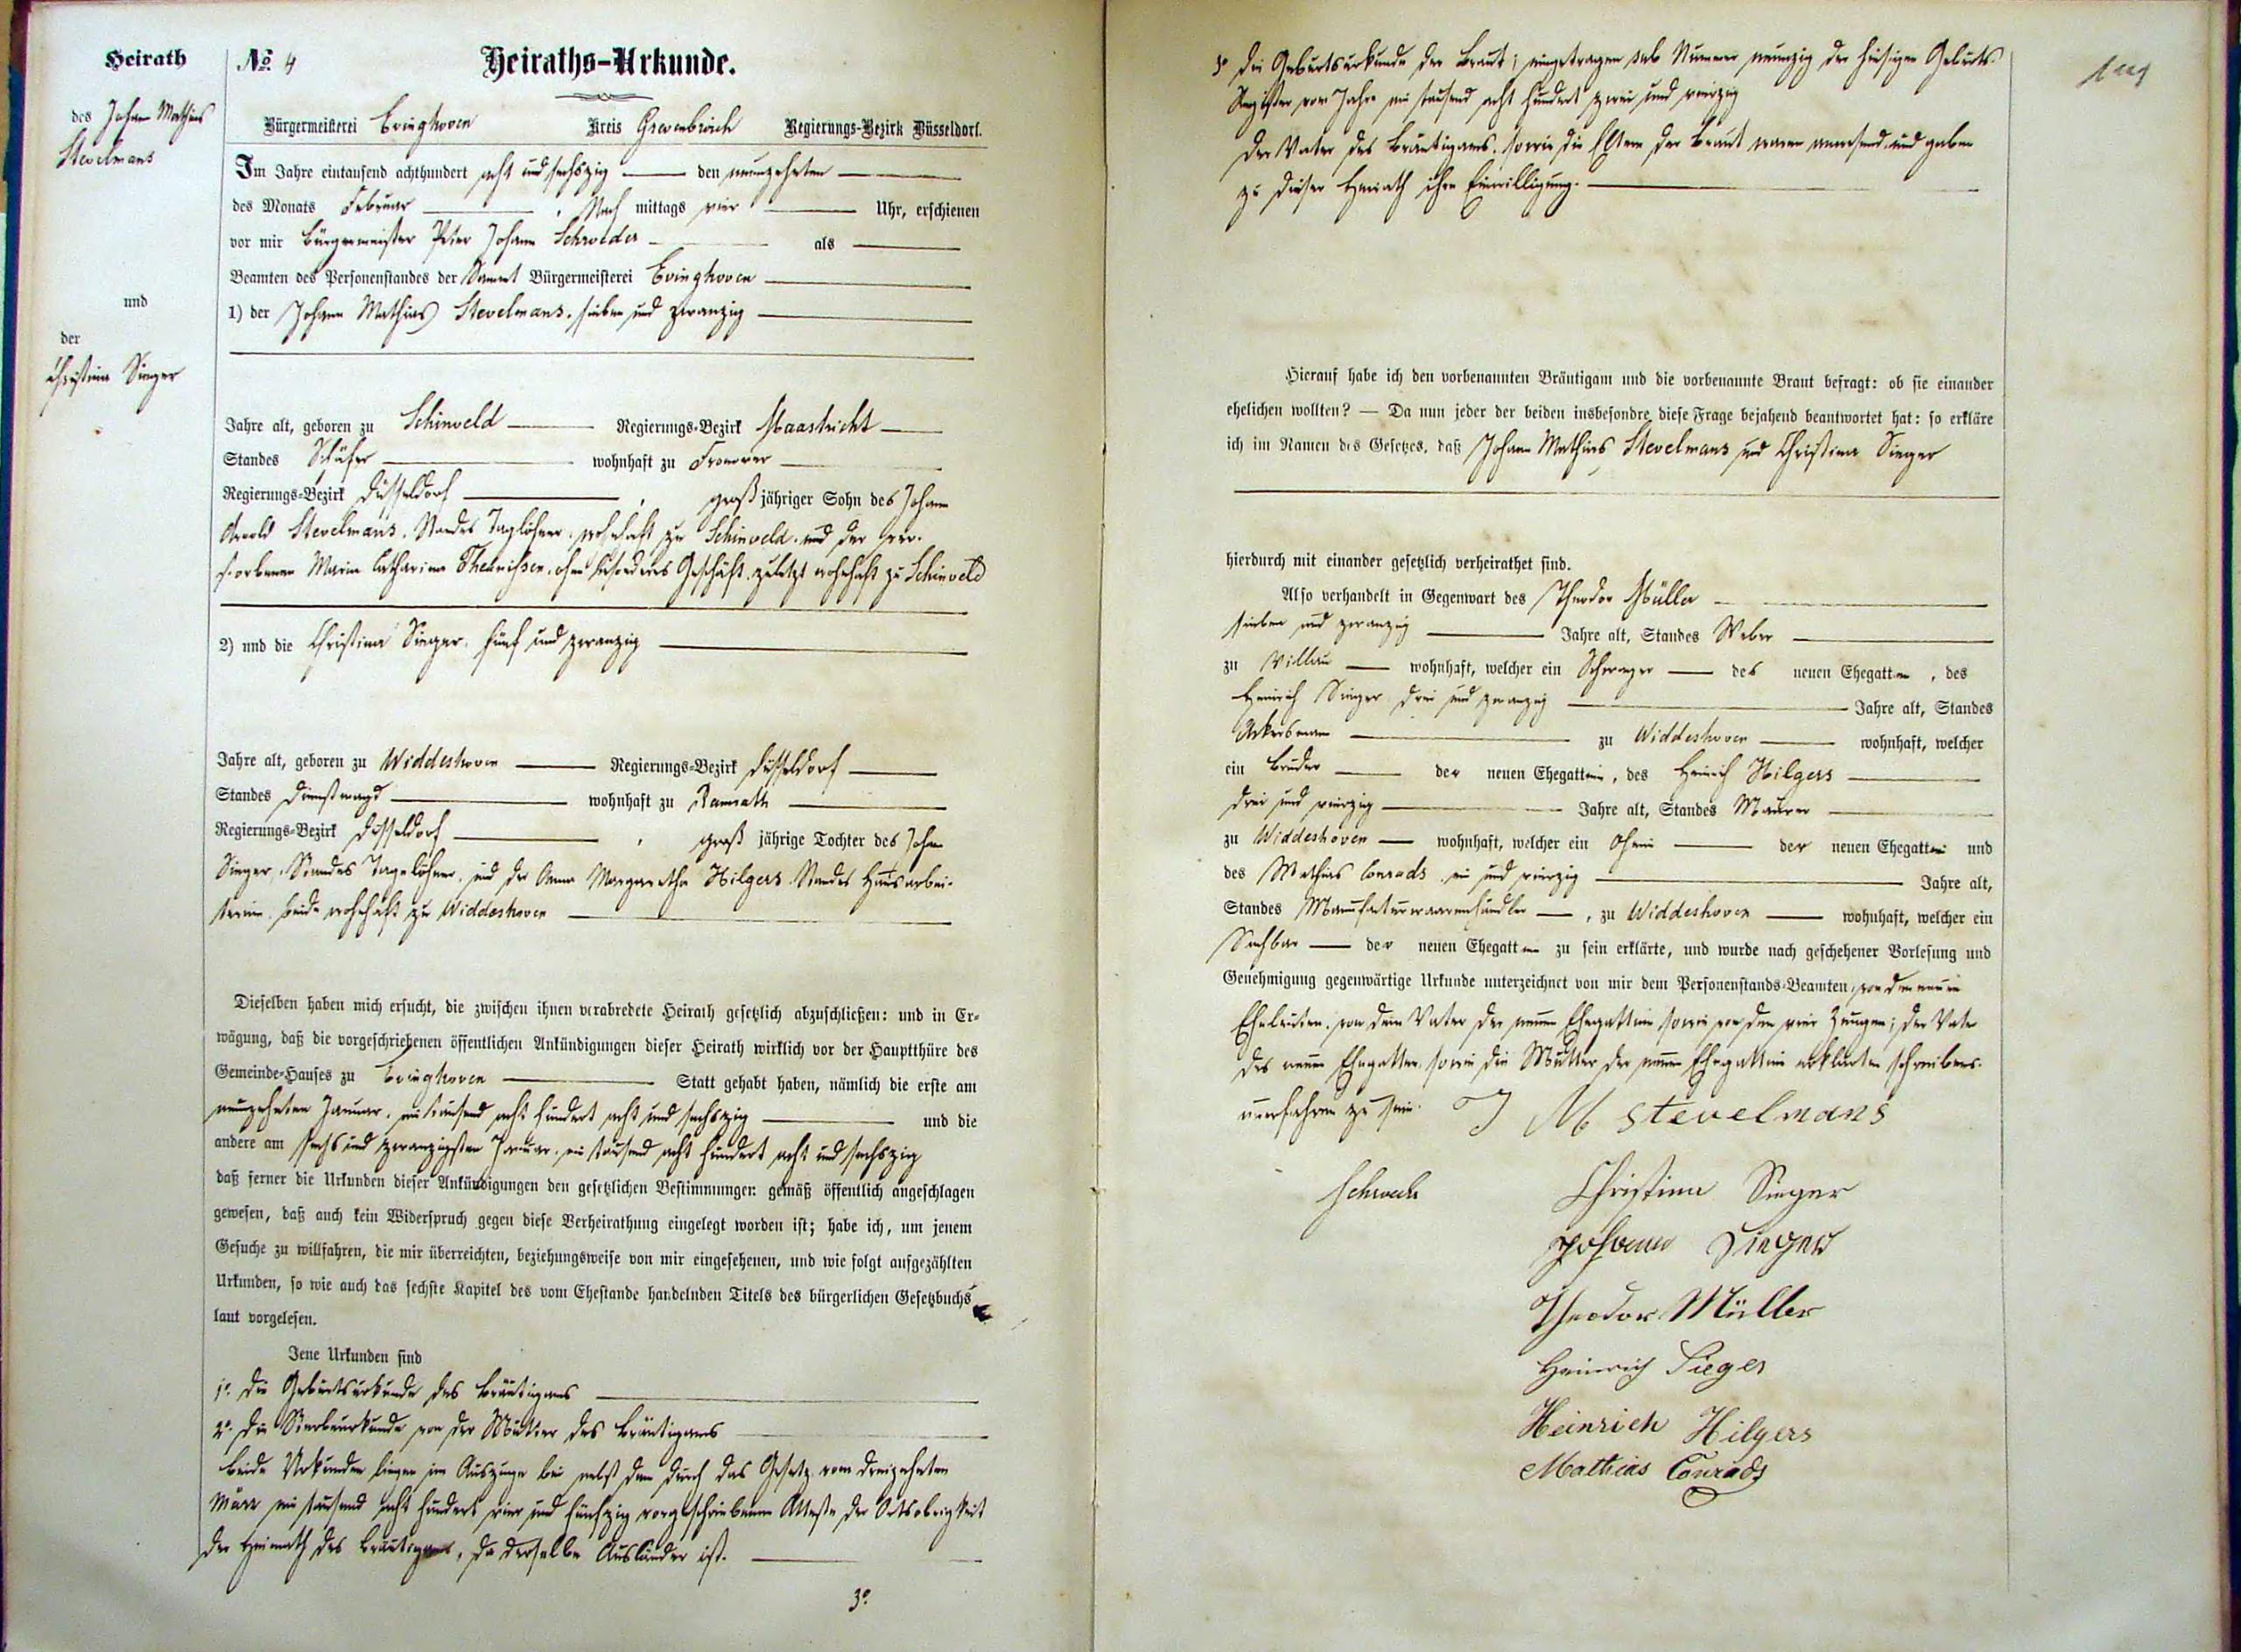 Heirath
des Johann Mathias
Stevelmans
und
der
Christina Sieger
No. 4 Heiraths-Urkunde.
Bürgermeisterei Evinghoven Kreis Grevenbroich Regierungs-Bezirk Düsseldorf.
Im Jahre eintausend achthundert acht und sechszig den neunzehnten
des Monats Februar, Nach mittags vier Uhr, erschienen
vor mir Bürgermeister Peter Johann Schroeder als
Beamten des Personenstandes der Sammt Bürgermeisterei Evinghoven
1) der Johann Mathias Stevelmans, sieben und zwanzig
Jahre alt, geboren zu Schinveld Regierungs-Bezirk Maastricht
Standes Schäfer wohnhaft zu
Regierungs-Bezirk Düsseldorf, groß jähriger Sohn des Johann
Arnold Stevelmans, Standes Taglöhner, wohnhaft zu Schinveld, und der ver-
storbenen Maria Catharina Theunissen, ohne besonderes Geschäft, zuletzt wohnhaft zu Schinveld
2) und die Christina Sieger, fünf und zwanzig
Jahre alt, geboren zu Widdeshoven Regierungs-Bezirk Düsseldorf
Standes Dienstmagd wohnhaft zu Ramrath
Regierungs-Bezirk Düsseldorf, groß jährige Tochter des Johann
Sieger, Standes Tagelöhner, und der Anna Margaretha Hilgers, Standes Hausarbei-
terin, beide wohnhaft zu Widdeshoven
Dieselben haben mich ersucht, die zwischen ihnen verabredete Heirath gesetzlich abzuschließen: und in Er-
wägung, daß die vorgeschriebenen öffentlichen Ankündigungen dieser Heirath wirklich vor der Hauptthüre des
Gemeinde-Hauses zu Evinghoven Statt gehabt haben, nämlich die erste am
neunzehnten Januar, ein tausend acht hundert acht und sechszig und die
andere am sechs und zwanzigsten Januar, ein tausend acht hundert acht und sechszig
daß ferner die Urkunden dieser Ankündigungen den gesetzlichen Bestimmungen gemäß öffentlich angeschlagen
gewesen, daß auch kein Widerspruch gegen diese Verheirathung eingelegt worden ist; habe ich, um jenem
Gesuche zu willfahren, die mir überreichten, beziehungsweise von mir eingesehenen, und wie folgt aufgezählten
Urkunden, so wie auch das sechste Kapitel des vom Ehestande handelnden Titels des bürgerlichen Gesetzbuchs
laut vorgelesen.
Jene Urkunden sind
1o. die Geburtsurkunde des Bräutigams
2o. die Sterbeurkunde von der Mutter des Bräutigams
beide Urkunden liegen im Auszuge bei nebst dem durch das Gesetz vom dreizehnten
März ein tausend acht hundert vier und fünfzig vorgeschriebenen Atteste der Ortsobrigkeit
der Heimath des Bräutigams, da derselbe Ausländer ist.
3o.
3o die Geburtsurkunde der Braut; eingetragen sub Nummer neunzig der hiesigen Geburts-
Register vom Jahre ein tausend acht hundert zwei und vierzig
Der Vater des Bräutigams, sowie die Eltern der Braut waren anwesend und gaben
zu dieser Heirath ihre Einwilligung.
Hierauf habe ich den vorbenannten Bräutigam und die vorbenannte Braut befragt: ob sie einander
ehelichen wollten? — Da nun jeder der beiden insbesondre diese Frage bejahend beantwortet hat: so erkläre
ich im Namen des Gesetzes, daß Johann Mathias Stevelmans und Christina Sieger
hierdurch mit einander gesetzlich verheirathet sind.
Also verhandelt in Gegenwart des Theodor Müller
sieben und zwanzig Jahre alt, Standes Weber
zu Villau wohnhaft, welcher ein Schwager des neuen Ehegatten, des
Heinrich Sieger, drei und zwanzig Jahre alt, Standes
Ackersmann zu Widdeshoven wohnhaft, welcher
ein Bruder der neuen Ehegattin, des Heinrich Hilgers
drei und vierzig Jahre alt, Standes Maurer
zu Widdeshoven wohnhaft, welcher ein Oheim der neuen Ehegattin und
des Mathias Conrads, ein und vierzig Jahre alt,
Standes Manufakturwaarenhändler, zu Widdeshoven wohnhaft, welcher ein
Nachbar der neuen Ehegatten zu sein erklärte, und wurde nach geschehener Vorlesung und
Genehmigung gegenwärtige Urkunde unterzeichnet von mir dem Personenstands-Beamten, von den neuen
Eheleuten, von dem Vater der neuen Ehegattin sowie von den vier Zeugen; der Vater
des neuen Ehegatten, sowie die Mutter der neuen Ehegattin erklärten schreibens-
unerfahren zu sein. J M Stevelmans
Schroeder Christina Sieger
Johann Siegers
Theodor Müller
Heinrich Sieger
Heinrich Hilgers
Mathias Conrads